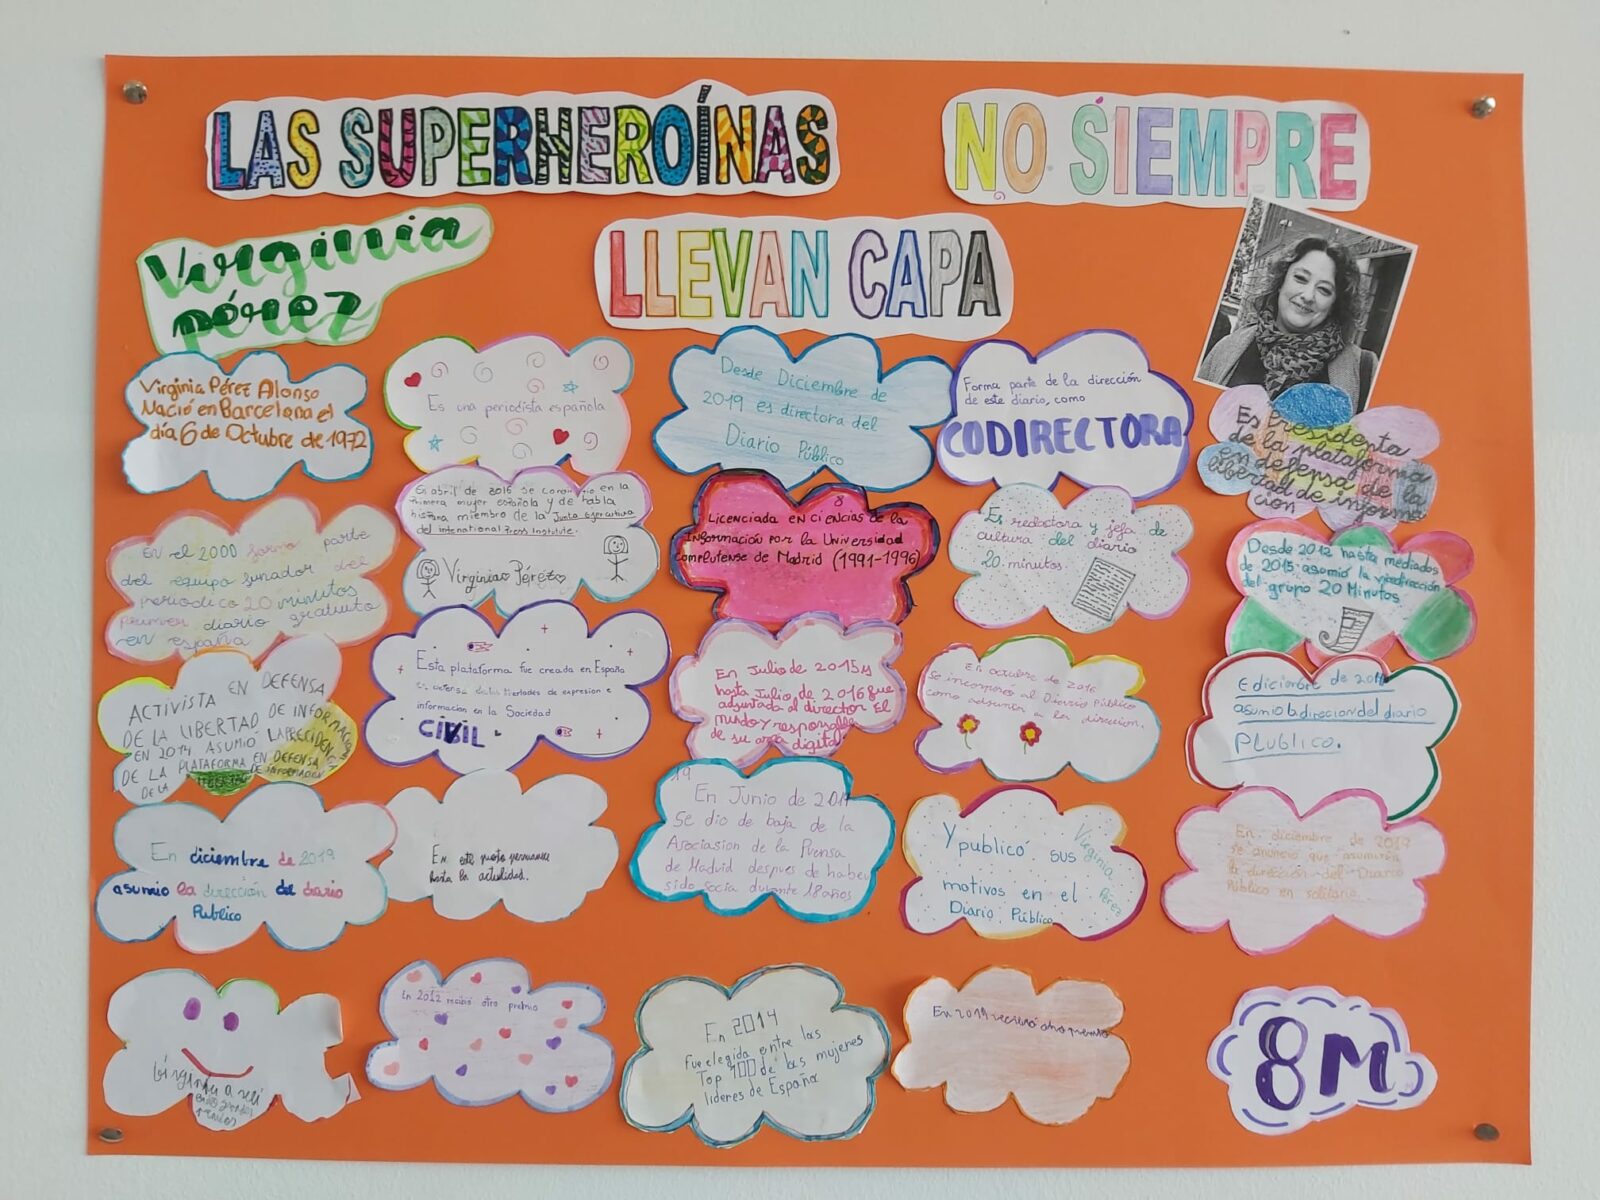 LAS SUPERHEROÍNAS
NO SIEMPRE
LLEVAN CAPA
Virginia
pérez
Virginia Pérez Alonso
Nació en Barcelona el
día 6 de Octubre de 1972
Es una periodista española
Desde Diciembre de
2019 es directora del
Diario Público
Forma parte de la dirección
de este diario, como
CODIRECTORA
Es Presidenta
de la plataforma
en defensa de la
libertad de informa
cion
En el 2000 formó parte
del equipo funador del
periodico 20 minutos
primer diario gratuito
en españa
En abril de 2016 se convirtio en la
Primera mujer española y de habla
hispana miembro de la Junta ejecutiva
del international Press Institute.
Virginia Pérez
8
Licenciada en ciencias de la
Información por la Universidad
complutense de Madrid (1991-1996)
Es redactora y jefa de
cultura del diario
20 minutos.
Desde 2012 hasta mediados
de 2015 asumió la vicedirección
del grupo 20 Minutos
ACTIVISTA EN DEFENSA
DE LA LIBERTAD DE INFORMACION
EN 2014 ASUMIÓ LA PRECIDENCIA
DE LA PLATAFORMA EN DEFENSA
DE LA DE INFORMACION
Esta plataforma fue creada en España
en defensa de las libertades de expresion e
informacion en la Sociedad
CIVIL
En Julio de 2015 y
hasta Julio de 2016 fue
adjuntada al director El
Mundo y responsable
de su area digital
En octubre de 2016
se incorporó al Diario Público
como adjunta a la dirección.
E diciembre de 2019
asumio la direcion del diario
PLublico.
En diciembre de 2019
asumio la dirección del diario
Publico
En este puesto permanece
hasta la actualidad.
19
En Junio de 2017
Se dio de baja de la
Asociasion de la Prensa
de Madrid despues de haber
sido socia durante 18 años
Y publicó sus
motivos en el
Diario Público
Virginia Pérez
En diciembre de 2019
se anuncio que asumiria
la dirección del Diario
Público en solitario
birginia a
En 2012 recibió otro premio
En 2014
Fue elegida entre las
Top 100 de las mujeres
lideres de España
En 2019 recibió otro premio
8M